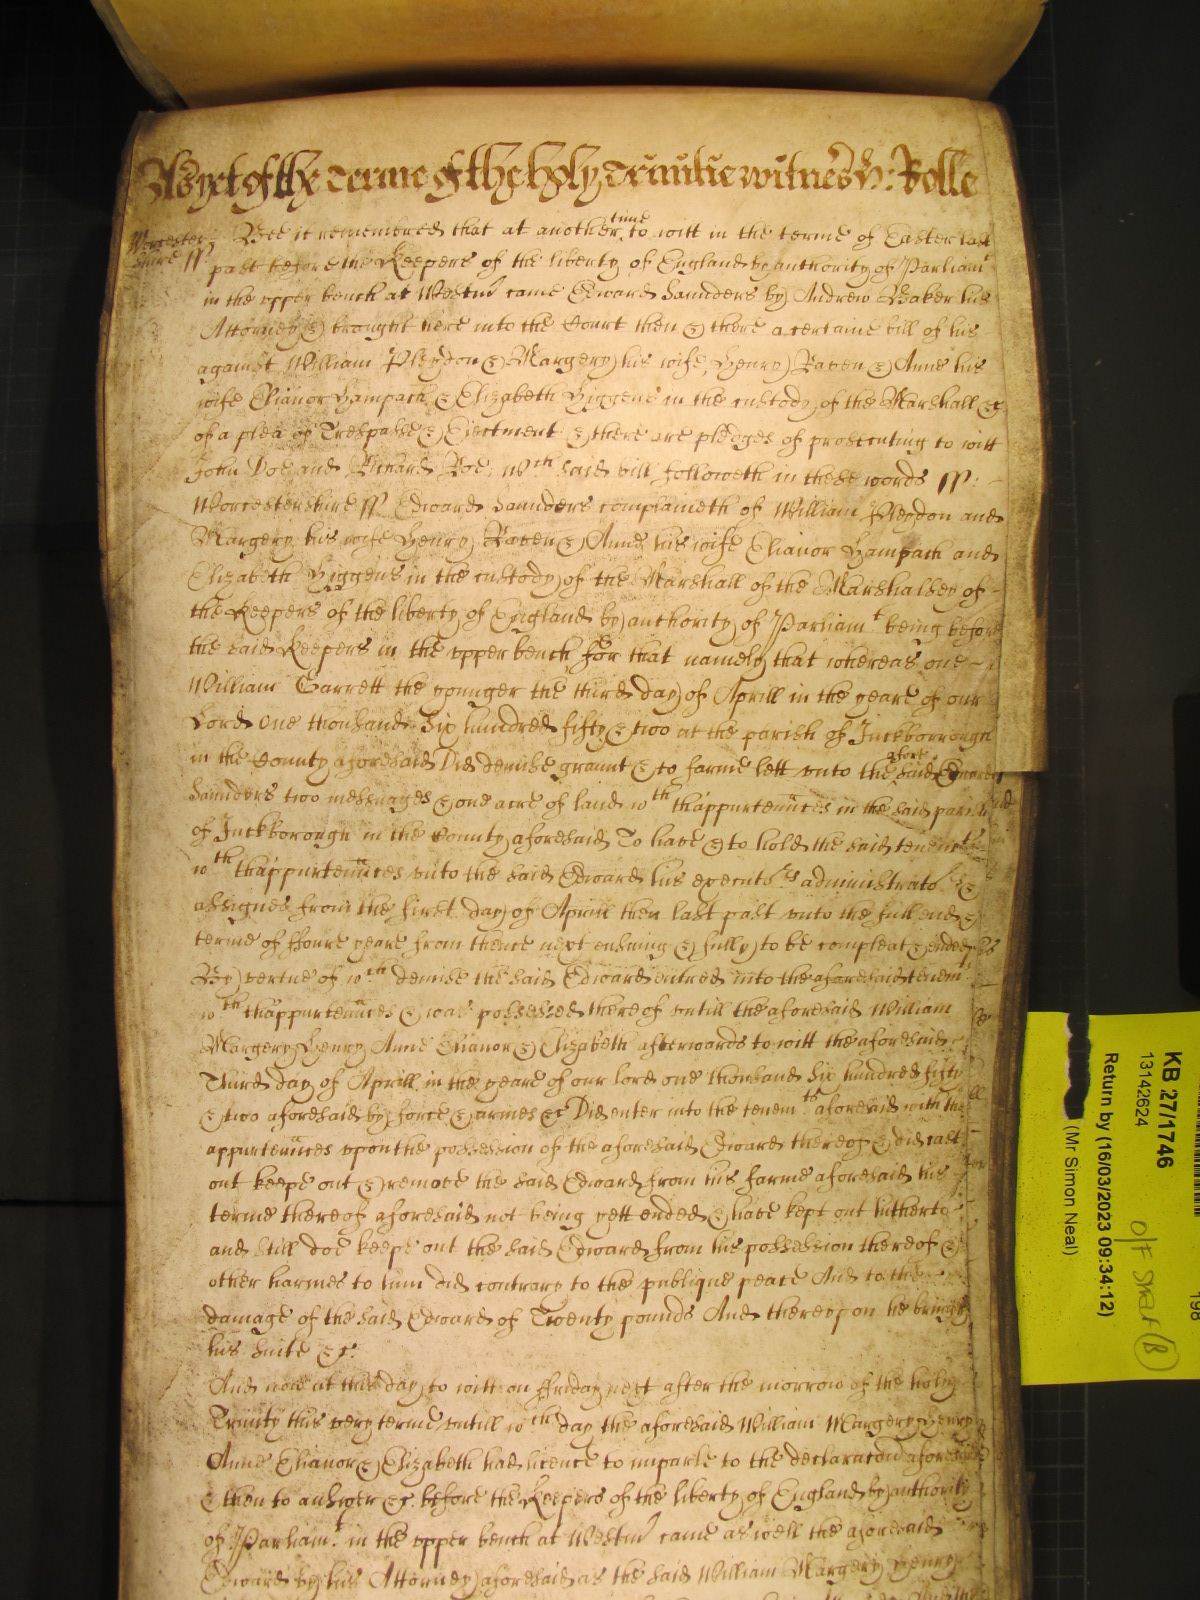 As yet of the Terme of the holy Trinitie witnes H: Rolle
Worcester
shire ss
Bee it remembred that at another time to witt in the terme of Easter last
past before the Keepers of the liberty of England by authority of Parliamt
in the upper bench at Westmr came Edward Saunders by Andrew Baker his
Attorney & brought here into the Court then & there a certaine bill of his
against William Pleydon & Margery his wife, Henry Raven & Anne his
wife Elianor Hampach & Elizabeth Higgens in the custody of the Marshall &c
of a plea of Trespasse & Ejectment & there are pledges of prosecuting to witt
John Doe and Richard Roe, wch said bill followeth in these words ss:
Worcestershire ss Edward Saunders complaineth of William Pleydon and
Margery his wife Henry Raven & Anne his wife Elianor Hampach and
Elizabeth Higgens in the custody of the Marshall of the Marshalsey of
the Keepers of the liberty of England by authority of Parliamt being before
the said Keepers in the upper bench for that namely that whereas one
William Garrett the younger the third day of Aprill in the yeare of our
Lord one thousand Six hundred fifty & two at the parish of Inckborrough
in the County aforesaid Did demise graunt & to farme lett unto the afore said Edward
Saunders two messuages & one acre of land wth thappurtennces in the said parish
of Inckborough in the County aforesaid To have & to hold the said tenemts
wth thappurtennces unto the said Edward his executors administrators &
assignes from the first day of Aprill then last past unto the full end &
terme of ffoure yeare from thence next ensuing & fully to be compleat & ended
By vertue of wch demise the said Edward entred into the aforesaid tenemts
wth thappurtennces & was possessed thereof untill the aforesaid William
Margery Henry Anne Elianor & Elizabeth afterwards to witt the aforesaid
Third day of Aprill in the yeare of our lord one thousand Six hundred fifty
& two aforesaid by force & armes &c Did enter into the tenemts aforesaid with the
appurtennces upon the possession of the aforesaid Edward thereof & did cast
out keepe out & remove the said Edward from his farme aforesaid his
terme thereof aforesaid not being yett ended & have kept out hitherto
and still doe keepe out the said Edward from his possession thereof &
other harmes to him did contrary to the publique peace And to the
damage of the said Edward of Twenty pounds And thereupon he bringeth
his suite &c.
And now at this day to witt on ffriday next after the morrow of the holy
Trinity this very terme untill wch day the aforesaid William Margery Henry
Anne Elianor & Elizabeth had licence to imparle to the declaracon aforesaid
& then to answer &c. before the Keepers of the liberty of England by authority
of Parliamt in the upper bench at Westmr came as well the aforesaid
Edward by his Attorney aforesaid as the said William Margery Henry
KB 27/1746
13142624
Return by (16/03/2023 09:34:12)
(Mr Simon Neal)
198